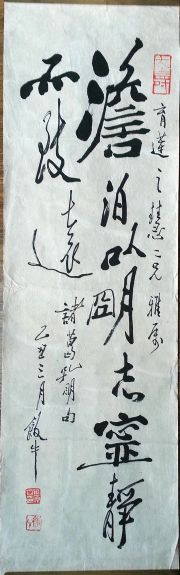 育蓮之慧二兄雅属
澹泊以明志寧靜
而致遠
諸葛孔明句
乙丑三月飯牛